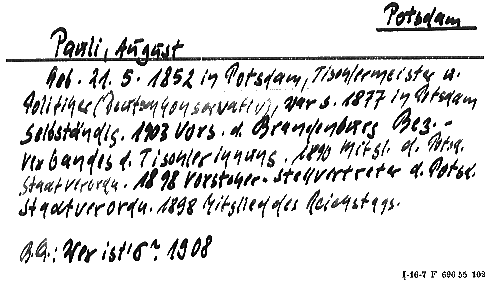 Potsdam
Pauli, August
Geb. 21. 5. 1852 in Potsdam, Tischlermeister u.
Politiker (Deutschkonservativ), war s. 1877 in Potsdam
selbständig. 1903 Vors. d. Brandenburg Bez.-
Verbandes d. Tischlerinnung. 1890 Mitgl. d. Potsd.
Stadtverordn. 1898 Vorsteher-Stellvertreter d. Potsd.
Stadtverordn. 1898 Mitglied des Reichstags.
B.A.: Wer ist's? 1908
I-16-7 F 690 55 103